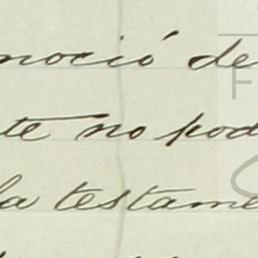 noció de
te no pod
la testame